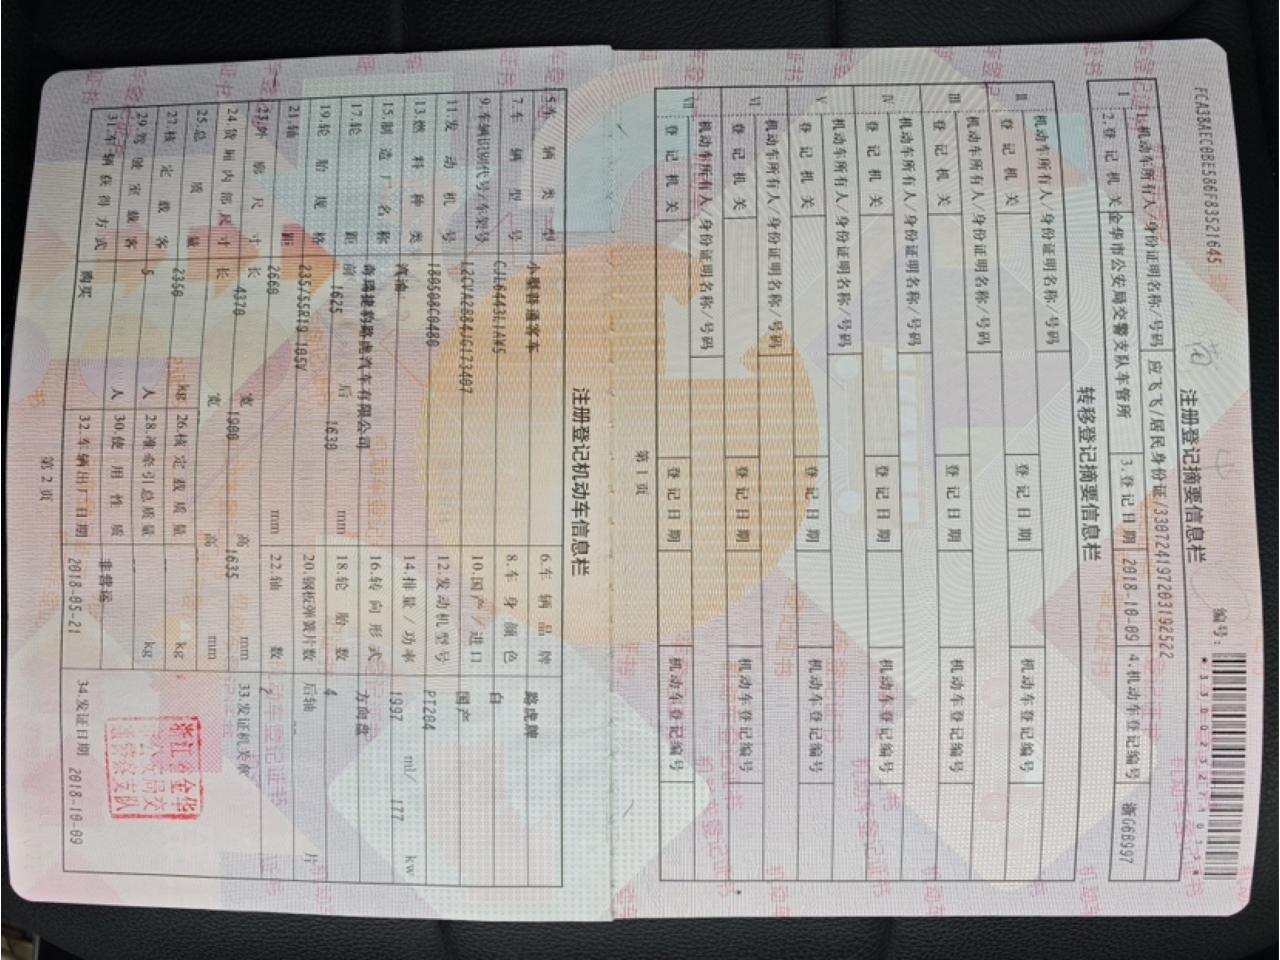 FCA38AEC0BE586F83521645
注册登记摘要信息栏
编号:
*330023277103*
Ⅰ
1.机动车所有人/身份证明名称/号码 应飞飞/居民身份证/330724197203192522
2.登记机关 金华市公安局交警支队车管所 3.登记日期 2018-10-09 4.机动车登记编号 浙G68997
转移登记摘要信息栏
Ⅱ
机动车所有人/身份证明名称/号码
登记机关 登记日期 机动车登记编号
Ⅲ
机动车所有人/身份证明名称/号码
登记机关 登记日期 机动车登记编号
Ⅳ
机动车所有人/身份证明名称/号码
登记机关 登记日期 机动车登记编号
Ⅴ
机动车所有人/身份证明名称/号码
登记机关 登记日期 机动车登记编号
Ⅵ
机动车所有人/身份证明名称/号码
登记机关 登记日期 机动车登记编号
Ⅶ
机动车所有人/身份证明名称/号码
登记机关 登记日期 机动车登记编号
第1页
注册登记机动车信息栏
5.车辆类型 小型普通客车 6.车辆品牌 路虎牌
7.车辆型号 CJL6443L1AW5 8.车身颜色 白
9.车辆识别代号/车架号 L2CVA2B84JG173407 10.国产/进口 国产
11.发动机号 180508C0480 12.发动机型号 PT204
13.燃料种类 汽油 14.排量/功率 1997 ml/ 177 kw
15.制造厂名称 奇瑞捷豹路虎汽车有限公司 16.转向形式 方向盘
17.轮距 前 1625 后 1630 mm 18.轮胎数 4
19.轮胎规格 235/55R19 105V 20.钢板弹簧片数 后轴 -- 片
21.轴距 2660 mm 22.轴数 2
23.外廓尺寸 长 4370 宽 1900 高 1635 mm
33.发证机关章
24.货厢内部尺寸 长 宽 高 mm
25.总质量 2350 kg 26.核定载质量 -- kg
27.核定载客 5 人 28.准牵引总质量 -- kg
29.驾驶室载客 人 30.使用性质 非营运
31.车辆获得方式 购买 32.车辆出厂日期 2018-05-21
34.发证日期 2018-10-09
第2页